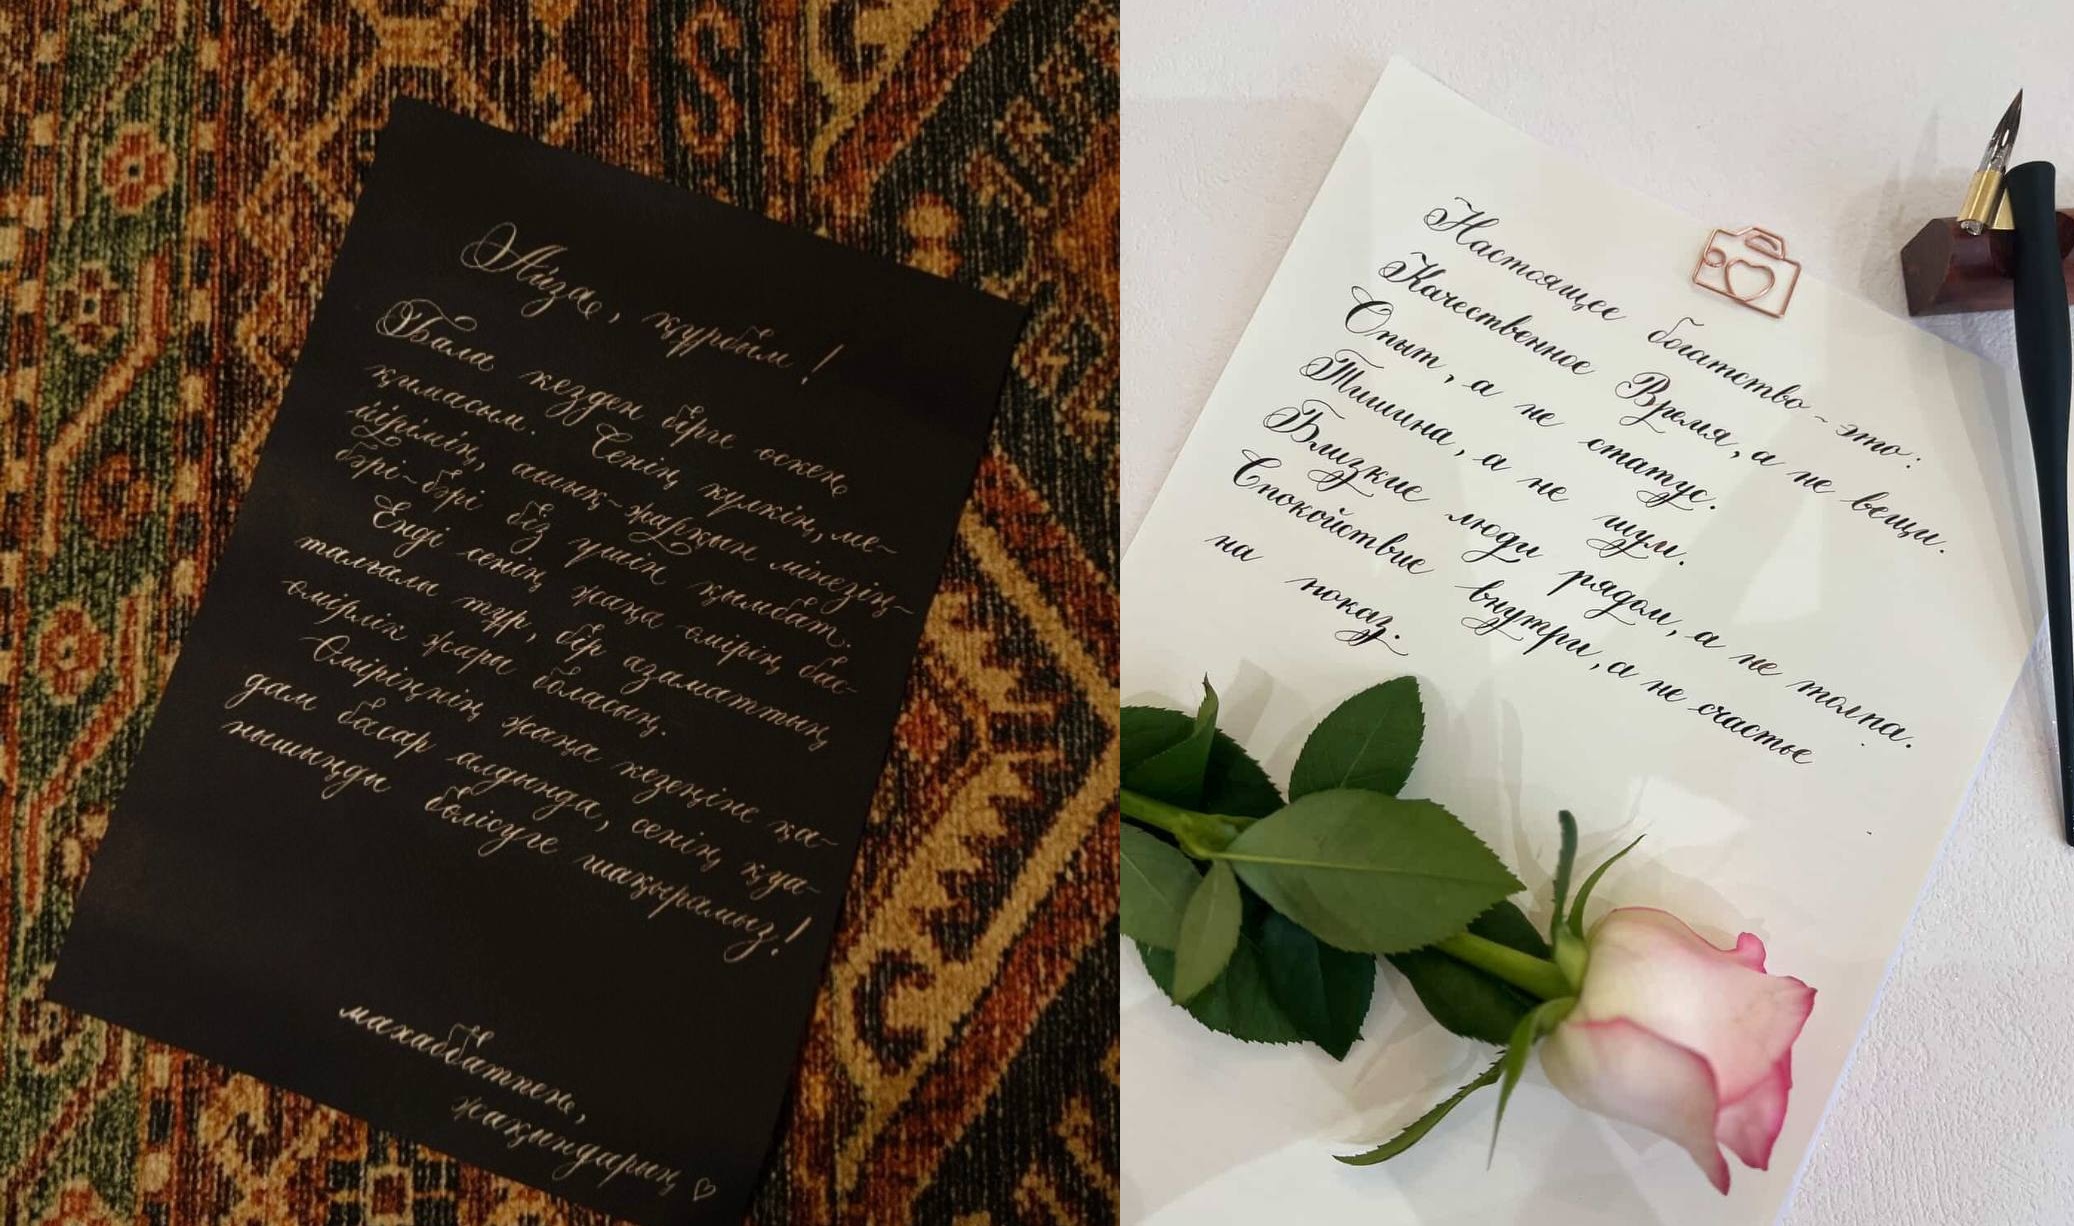 Айза, құрбым!
Бала кезден бірге өскен
қимасым. Сенің күлкің, ме-
йірімің, ашық-жарқын мінезің-
бәрі-бәрі біз үшін қымбат.
Енді сенің жаңа өмірің бас-
талғалы тұр, бір азаматтың
өмірлік жары боласың.
Өміріңнің жаңа кезеңіне қа-
дам басар алдында, сенің қуа-
нышыңды бөлісуге шақырамыз!
махаббатпен,
жақындарың ♡
Настоящее богатство - это:
Качественное Время, а не вещи.
Опыт, а не статус.
Тишина, а не шум.
Близкие люди рядом, а не толпа.
Спокойствие внутри, а не счастье
на показ.